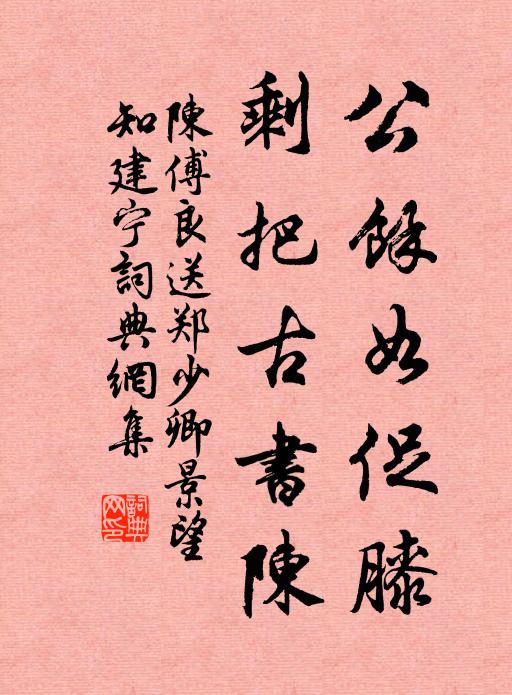 公餘如促膝
剩把古書陳
陳傅良送郑少卿景望
知建宁詞典網集
詞典網印